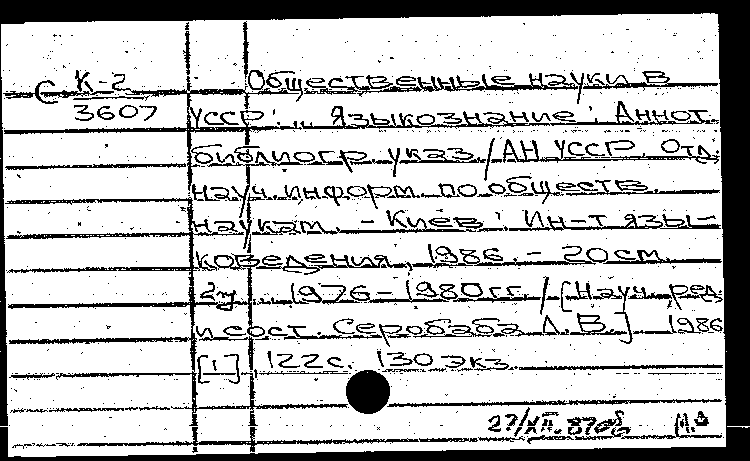 С К-2 Общественные науки в
3607 УССР: ... Языкознание: Аннот.
библиогр. указ. / АН УССР. Отд.
науч. информ. по обществ.
наукам. - Киев: Ин-т язы-
коведения, 1986. - 20 см.
... 1976-1980 гг. / [Науч. ред.
и сост. Серобаба Л. В.] 1986
[1], 122 с. 130 экз.
27/XII.87